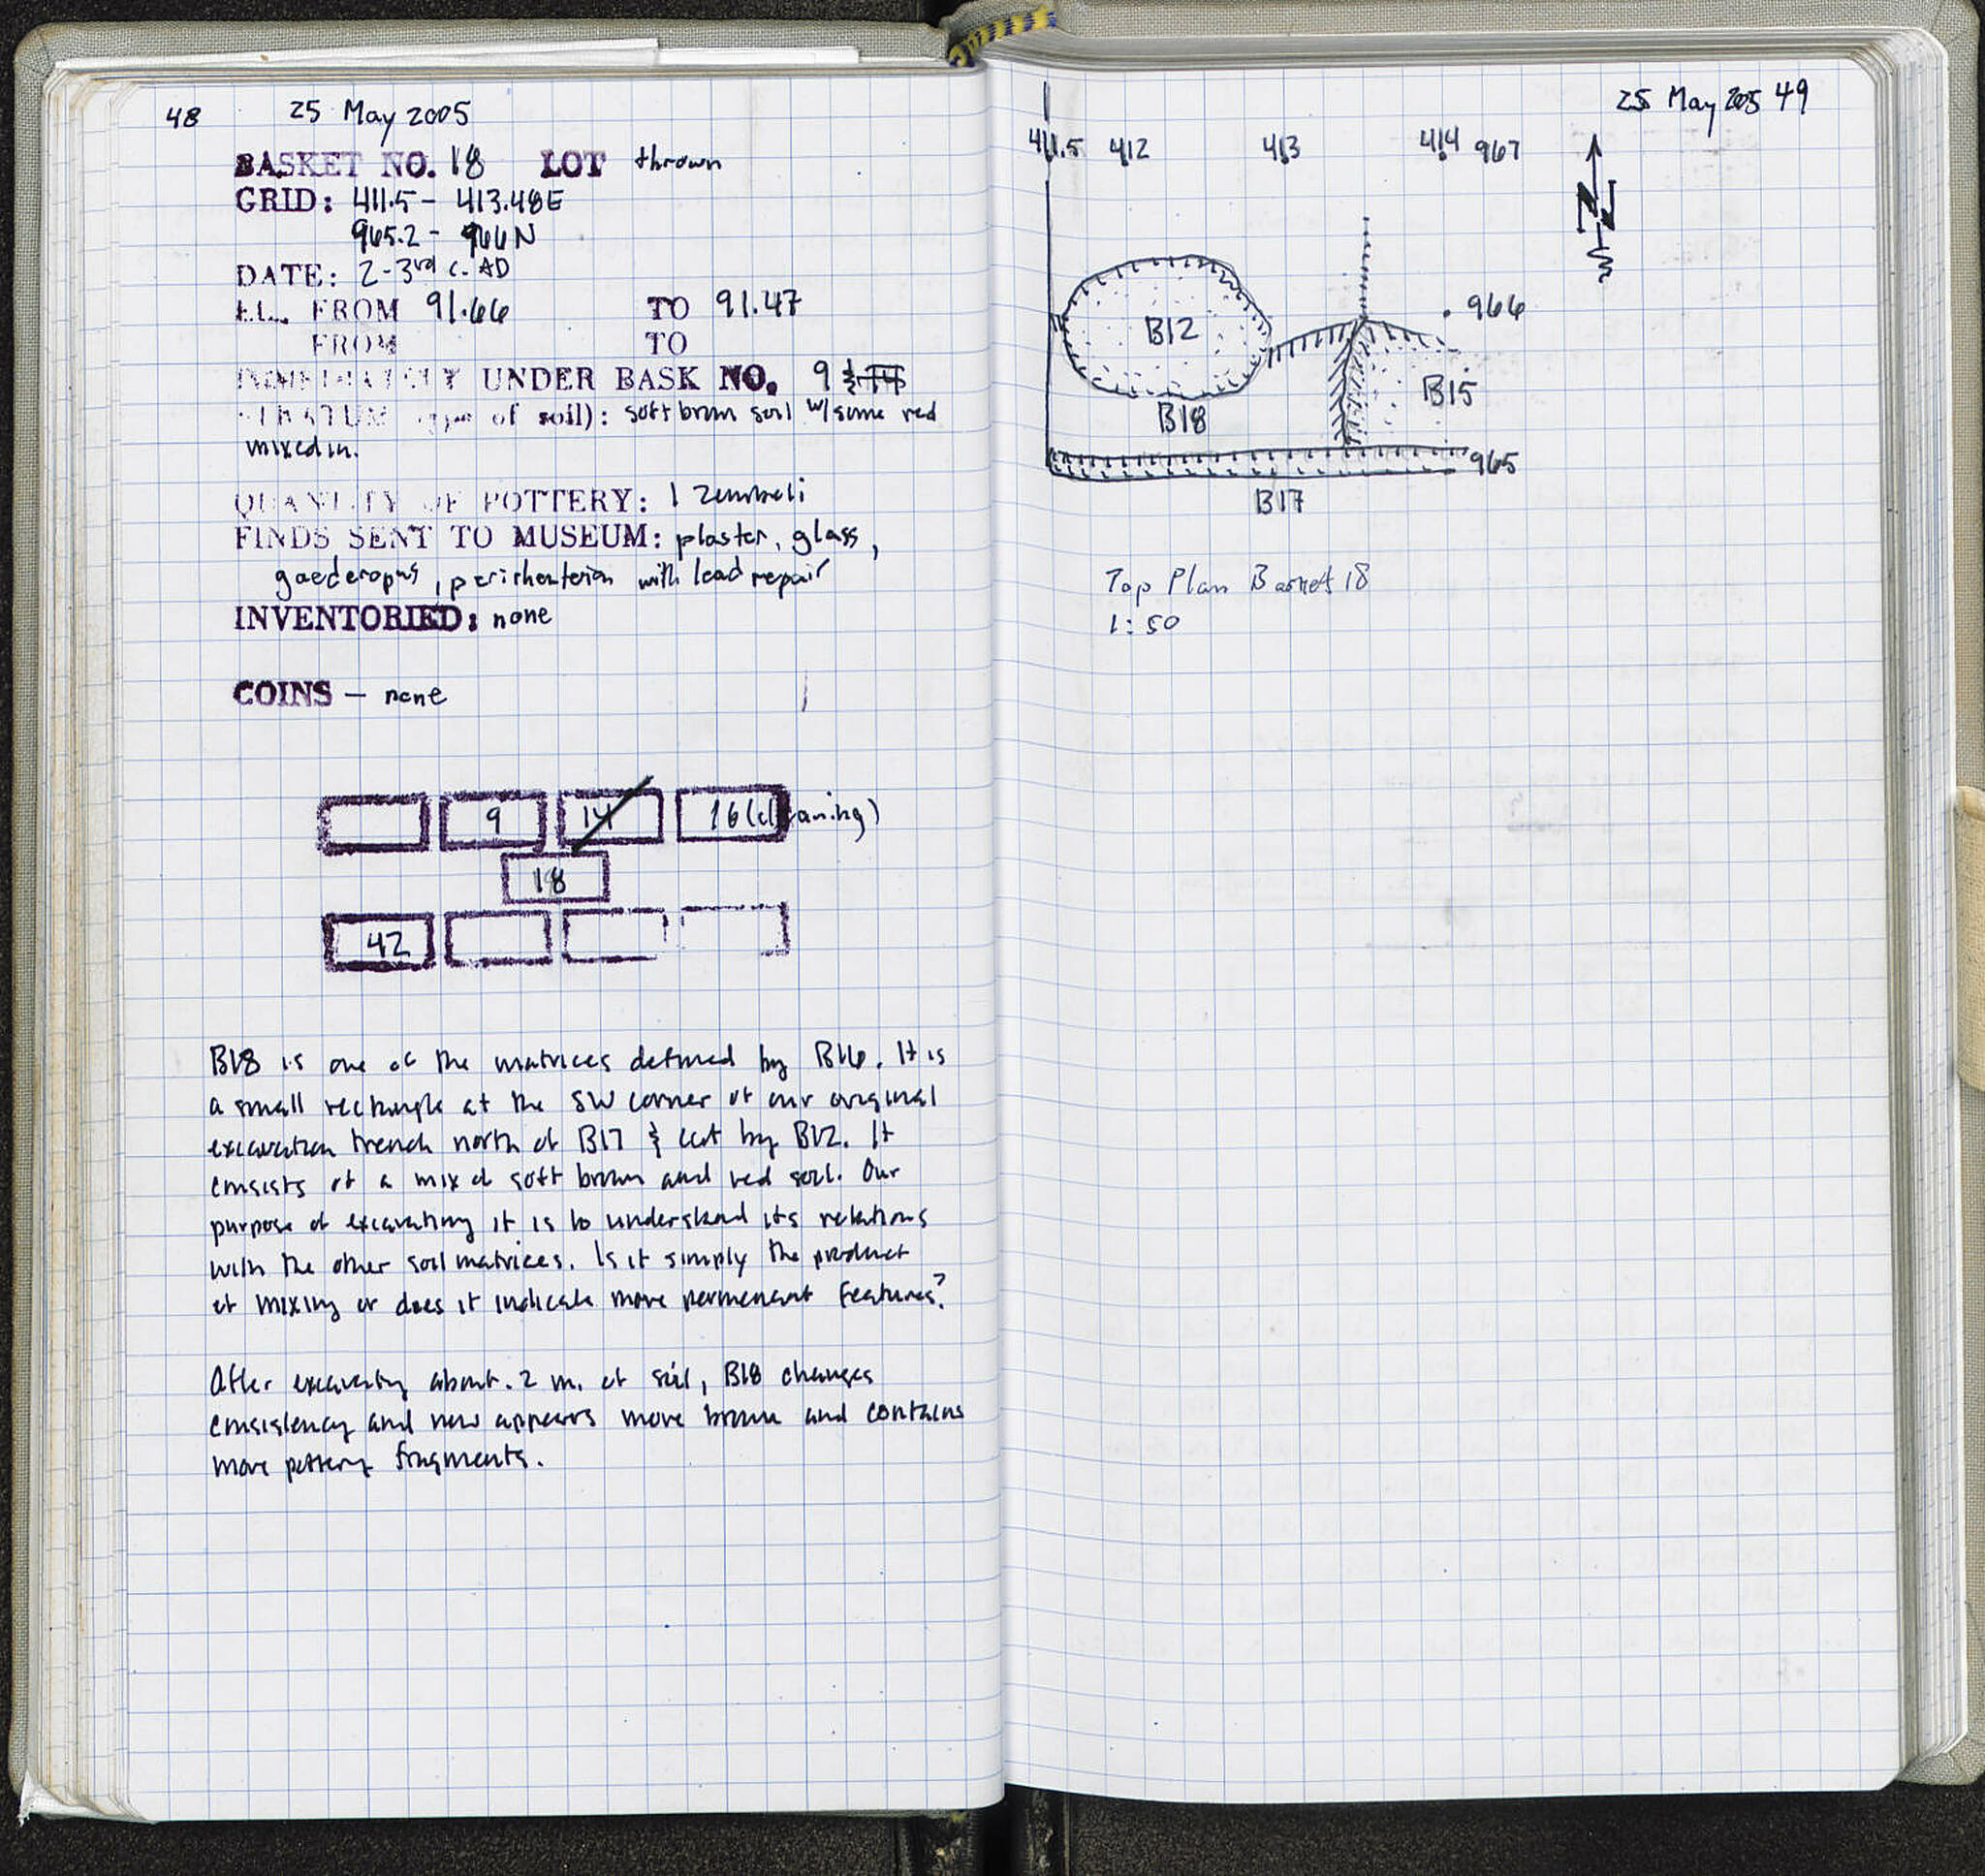 48 25 May 2005
BASKET NO. 18 LOT thrown
GRID: 411.5 - 413.48E
965.2 - 966N
DATE: 2-3rd c. AD
EL. FROM 91.66 TO 91.47
FROM TO
IMMEDIATELY UNDER BASK NO. 9 & 14
STRATUM (type of soil): soft brown soil w/some red
mixed in.
QUANTITY OF POTTERY: 1 zembeli
FINDS SENT TO MUSEUM: plaster, glass,
gaederopus, perirhanterion with lead repair
INVENTORIED: none
COINS - none
9 14 16 (cleaning)
18
42
B18 is one of the matrices defined by B16. It is
a small rectangle at the SW corner of our original
excavation trench north of B17 & cut by B12. It
consists of a mix of soft brown and red soil. Our
purpose of excavating it is to understand its relations
with the other soil matrices. Is it simply the product
of mixing or does it indicate more permenant features?
After excavating about .2 m. of soil, B18 changes
consistency and now appears more brown and contains
more pottery fragments.
25 May 2005 49
411.5 412 413 414 967
N
966
B12
B15
B18
965
B17
Top Plan Basket 18
1:50